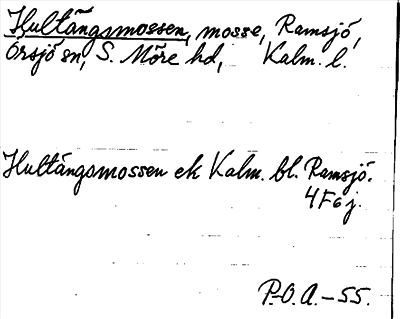 Hultängsmossen, mosse, Ramsjö,
Örsjö sn, S. Möre hd, Kalm. l.
Hultängsmossen ek Kalm. bl. Ramsjö.
4F6j.
P.O.A. - 55.